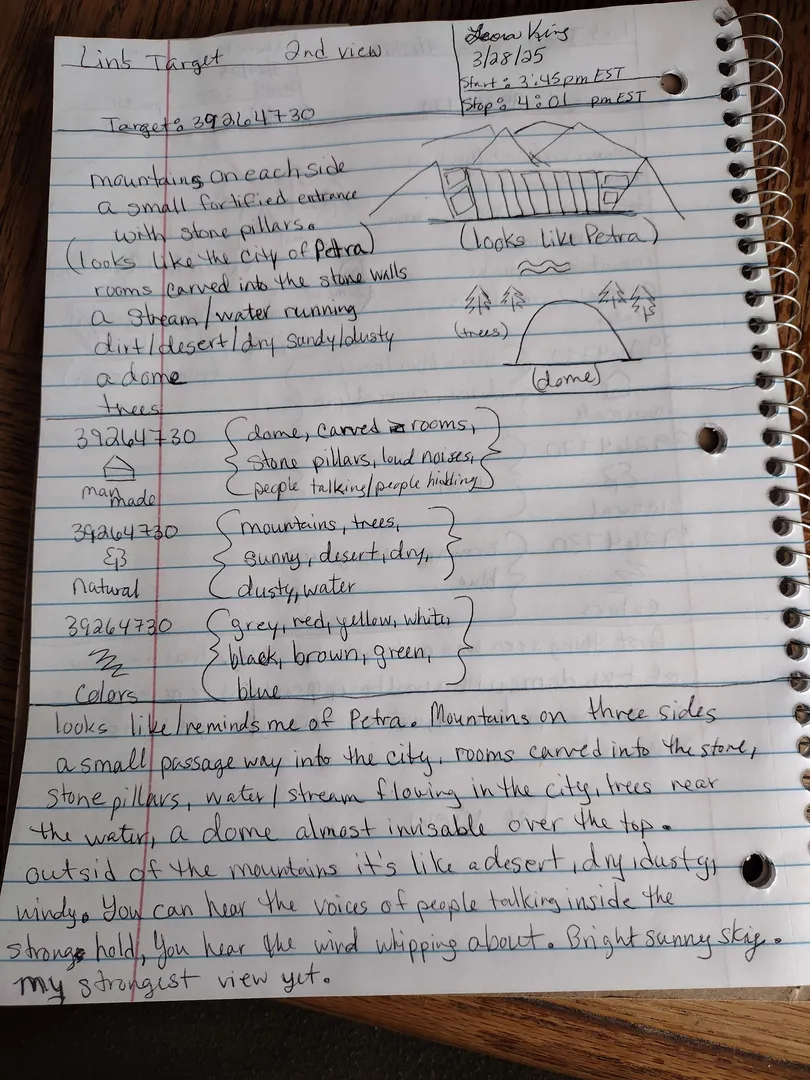 Link Target 2nd view
Leora King
3/28/25
Start: 3:45 pm EST
Stop: 4:01 pm EST
Target: 39264730
mountains on each side
a small fortified entrance
with stone pillars.
(looks like the city of Petra)
rooms carved into the stone walls
a stream/water running
dirt/desert/dry sandy/dusty
a dome
trees
(looks like Petra)
(trees)
(dome)
39264730
man made
dome, carved rooms,
stone pillars, loud noises,
people talking/people hidding
39264730
natural
mountains, trees,
sunny, desert, dry,
dusty, water
39264730
Colors
grey, red, yellow, white,
black, brown, green,
blue
looks like/reminds me of Petra. Mountains on three sides
a small passage way into the city, rooms carved into the stone,
stone pillars, water/stream flowing in the city, trees near
the water, a dome almost invisable over the top.
outsid of the mountains it's like a desert, dry, dusty,
windy. You can hear the voices of people talking inside the
strong hold, You hear the wind whipping about. Bright sunny sky.
my strongest view yet.